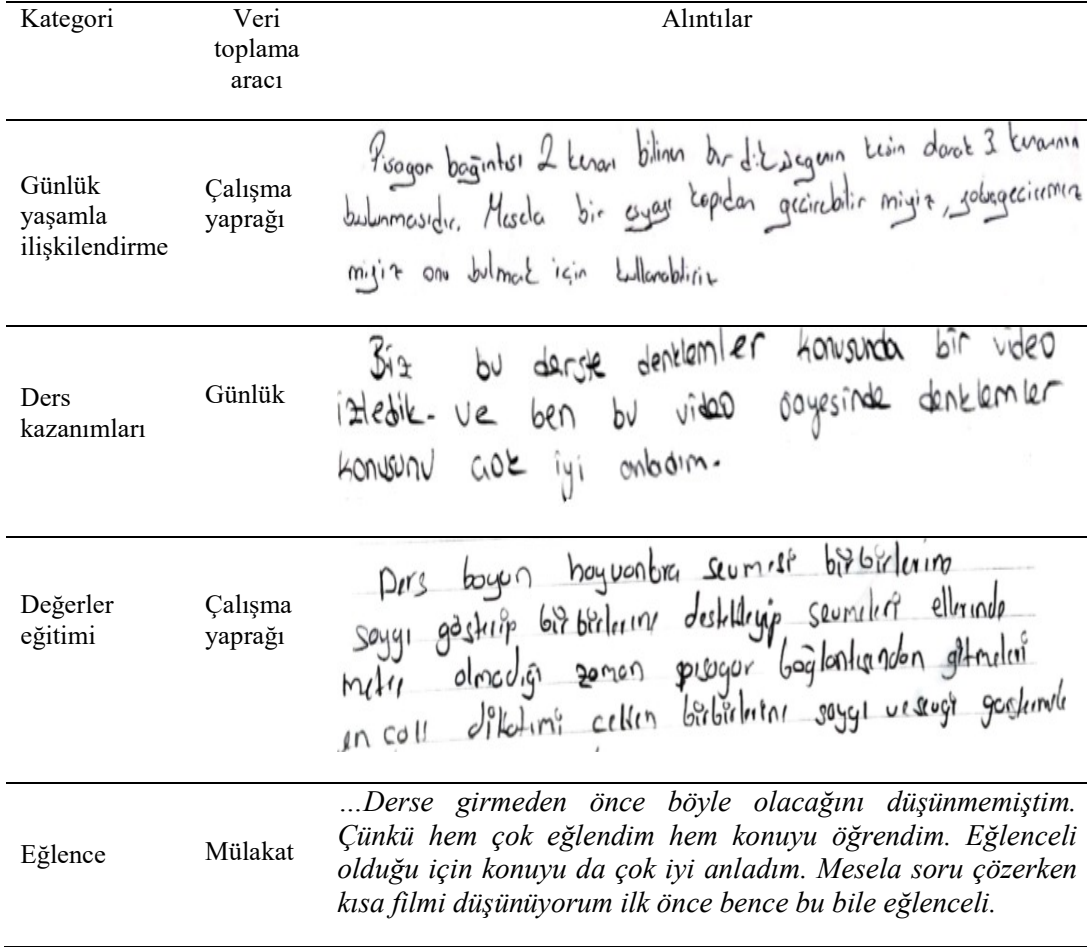 Kategori Veri toplama aracı Alıntılar
Günlük yaşamla ilişkilendirme
Çalışma yaprağı
Pisagor bağıntısı 2 kenarı bilinen bir dik üçgenin kesin olarak 3. kenarının
bulunmasıdır. Mesela bir eşyayı kapıdan geçirebilir miyiz, yoksa geçiremez
miyiz onu bulmak için kullanabiliriz
Ders kazanımları
Günlük
Biz bu derste denklemler konusunda bir video
izledik. ve ben bu video sayesinde denklemler
konusunu çok iyi anladım.
Değerler eğitimi
Çalışma yaprağı
Ders boyun hayvanları sevmesi birbirlerine
saygı gösterip birbirlerini destekleyip sevmeleri ellerinde
metre olmadığı zaman pisagor bağlantısından gitmeleri
en dikatimi çeken birbirlerini saygı ve sevgi
Eğlence
Mülakat
…Derse girmeden önce böyle olacağını düşünmemiştim.
Çünkü hem çok eğlendim hem konuyu öğrendim. Eğlenceli
olduğu için konuyu da çok iyi anladım. Mesela soru çözerken
kısa filmi düşünüyorum ilk önce bence bu bile eğlenceli.